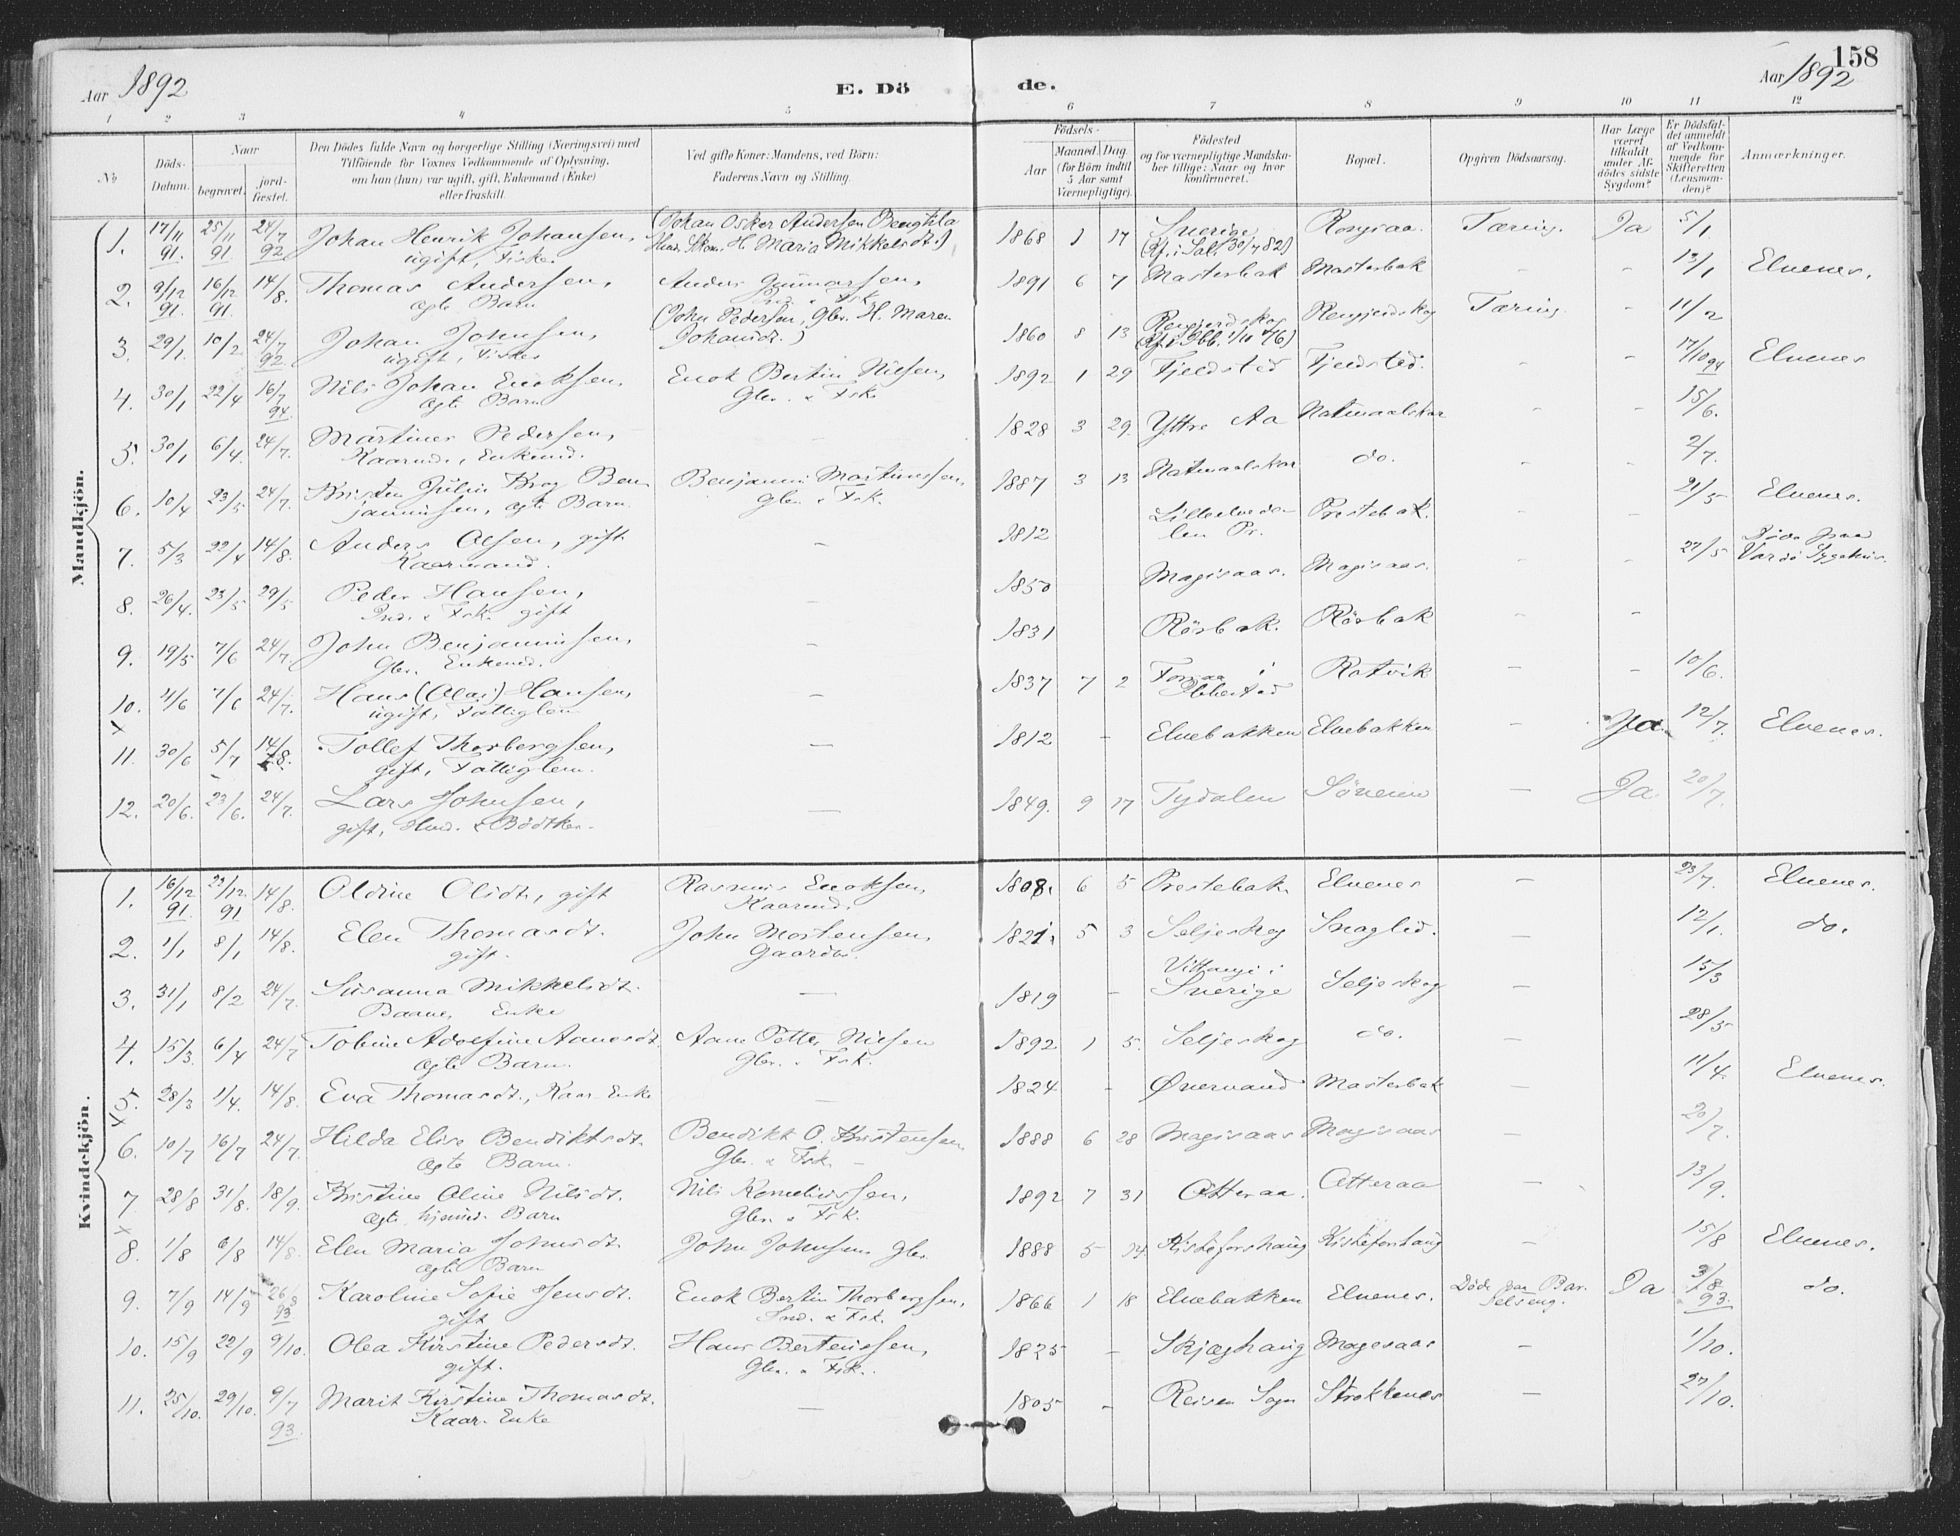 158
Aar 1892
E. Dö
de.
Aar 1892
1 2 3 4 5 6 7 8 9 10 11 12
No
Döds-
Datum.
Naar
begravet.
jord-
fæstet.
Den Dödes fulde Navn og borgerlige Stilling (Næringsvei) med
Tilföiende for Voxnes Vedkommende af Oplysning,
om han (hun) var ugift, gift, Enkemand (Enke)
eller fraskilt.
Ved gifte Koner: Mandens, ved Börn:
Faderens Navn og Stilling.
Födsels-
Aar
Maaned. Dag.
(for Börn indtil
5 Aar samt
Værnepligtige).
Födested
og for værnepligtige Mandska-
ber tillige: Naar og hvor
konfirmeret.
Bopæl.
Opgiven Dödsaarsag.
Har Læge
været
tilkaldt
under Af-
dödes sidste
Sygdom?
Er Dödsfal-
det anmeldt
af Vedkom-
mende for
Skifteretten
(Lensman-
den)?
Anmærkninger.
Mandkjön.
1. 17/11 91. 25/11 91 24/7 92 Johan Henrik Johansen, (Johan Oskar Andersen 1868 1 17 Sverige Tæring. Ja 5/1
ugift, Fisker H. Maria Mikkelsdt.) (Kf. i Sal. 30/7 82)
2. 9/12 91. 16/12 91. 14/8. Thomas Andersen, Anders Gunnarsen, 1891 6 7 Masterbak Masterbak - - 13/1 Elvenes.
ægte Barn Ind. & Fsk.
3. 29/1. 10/2. 24/7 92. Johan Johnsen, (John Pedersen, Gbr. H. Maren 1860 8 13 Tæring. - 11/2
ugift, Fisker Johansdt.)
4. 30/1 22/4 16/7 94. Nils Johan Enoksen, Enok Bertin Nilsen, 1892 1 29 Fjeldsted Fjeldsted. - - 17/10 94 Elvenes
ægte Barn Gbr. & Fsk.
5. 30/1 6/4. 24/7. Martines Pedersen, - 1828 3 29. Yttre Aa - - 15/6.
Kaarmd., Enkemd.
6. 10/4 23/5 24/7. Kristen Julin Krog Ben- Benjamin Martinussen, 1887 3 13 do. - - 2/7.
jaminsen, ægte Barn. Gbr. & Fsk.
7. 5/3 22/4 14/8. Anders Olsen, gift - 1812 Prestebak. - - 21/5 Elvenes.
Kaarmand.
8. 26/4. 23/5 29/5 Peder Hansen, - 1850 Magisaas. Magisaas. 27/5 Döde paa
Ind. & Fsk. gift Vardö Sygehus.
9. 19/5 7/6 24/7. John Benjaminsen, - 1831 Rösbak. Rösbak - -
Gbr. Enkemd.
10. 4/6 7/6 24/7. Hans (Olai) Hansen, - 1837 7 2 Foraa i Rotvik - - 10/6.
ugift, Fattiglem Ibbestad
x
11. 30/6 5/7 14/8. Tollef Thorbergsen, - 1812 - Elvebakken Elvebakken - Ja. 12/7. Elvenes.
gift, Fattiglem.
12. 20/6. 23/6. 24/7. Lars Johnsen, - 1849. 9 17 Tydalen - Ja. 20/7.
gift, Ind. & Bödtker.
Kvindekjön.
1. 16/12 91. 23/12. 91 14/8. Oldine Olsdt, gift Rasmus Enoksen, 1808. 6 5 Prestebak. Elvenes - 23/7. Elvenes.
Kaarmd.
2. 1/1 8/1 14/8. Elen Thomasdt. John Mortensen, 1821. 5 3 Seljeskog Snaglid. - 12/1. do.
gift. Gaardbr.
3. 31/1 8/2 24/7. Susanna Mikkelsdt. - 1819 - Vittangi i Seljeskog - 15/3
Enke Sverige
4. 15/3. 6/4 24/7 Tobine Adolfine Aanesdt. Aane Petter Nilsen 1892 1 5. Seljeskog do. 28/5
ægte Barn. Gbr. & Fsk.
5. 28/3 1/4. 14/8. Eva Thomasdt., Kaar-Enke - 1824 - Övervand Masterbak 11/4. Elvenes.
x
6. 10/7 16/7 24/7. Hilda Elise Bendiktsdt. Bendikt O. Kristensen 1888 6 28 Magisaas Magisaas 20/7.
ægte Barn. Gbr. & Fsk. -
7 28/8 31/8. 18/9. Kristine Oline Nilsdt. Nils Korneliussen, 1892 7 31 Otteraa. Otteraa - 13/9.
ægte, hjemmed. Barn Gbr. & Fsk.
x
8. 1/8 6/8 14/8. Elen Maria Johnsdt. John Johnsen Gbr. 1888 5 14 Kistefoshaug Kistefoshaug - 15/8 Elvenes.
ægte Barn
9. 7/9 14/9 26/8 93 Karoline Sofie Jensdt. Enok Bertin Thorbergsen, 1866 1 18 Elvebakken Elvenes. Döde paa Bar- Ja 3/8 93. do.
gift Ind. & Fsk. selseng.
10. 15/9 22/9 9/10. Olea Kirstine Pedersdt. Hans Berteussen, 1825 - Skjæghaug Magesaas - 1/10.
gift. Gbr. & Fsk.
11. 25/10. 29/10. 9/7 93. Marit Kirstine Thomasdt. - 1805 - Reisen Sogn Strokkenes - 27/10.
Kaar-Enke